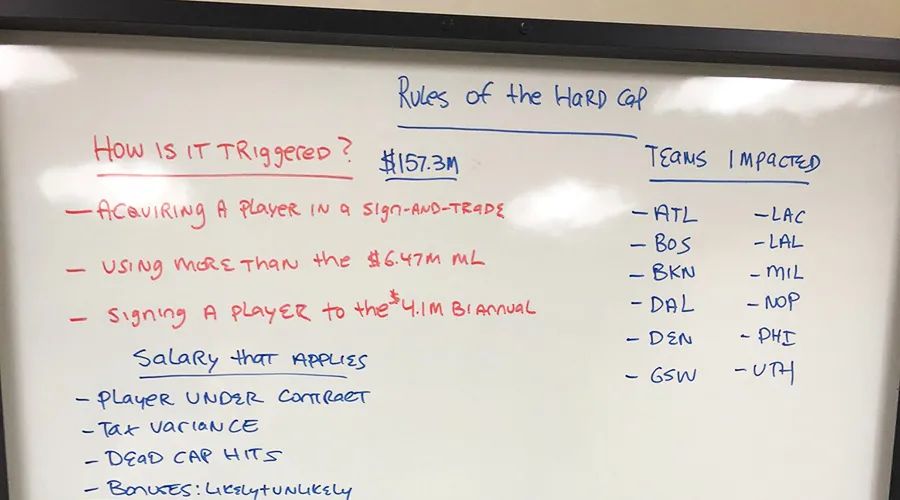 Rules of the Hard Cap
How Is It Triggered?
$157.3M
— Acquiring A Player in a Sign-And-Trade
— Using More Than the $6.47M ML
— Signing A Player to the $4.1M Biannual
Salary that Applies
— Player Under Contract
— Tax Variance
— Dead Cap Hits
— Bonuses: Likely + Unlikely
Teams Impacted
— ATL
— BOS
— BKN
— DAL
— DEN
— GSW
— LAC
— LAL
— MIL
— NOP
— PHI
— UTH